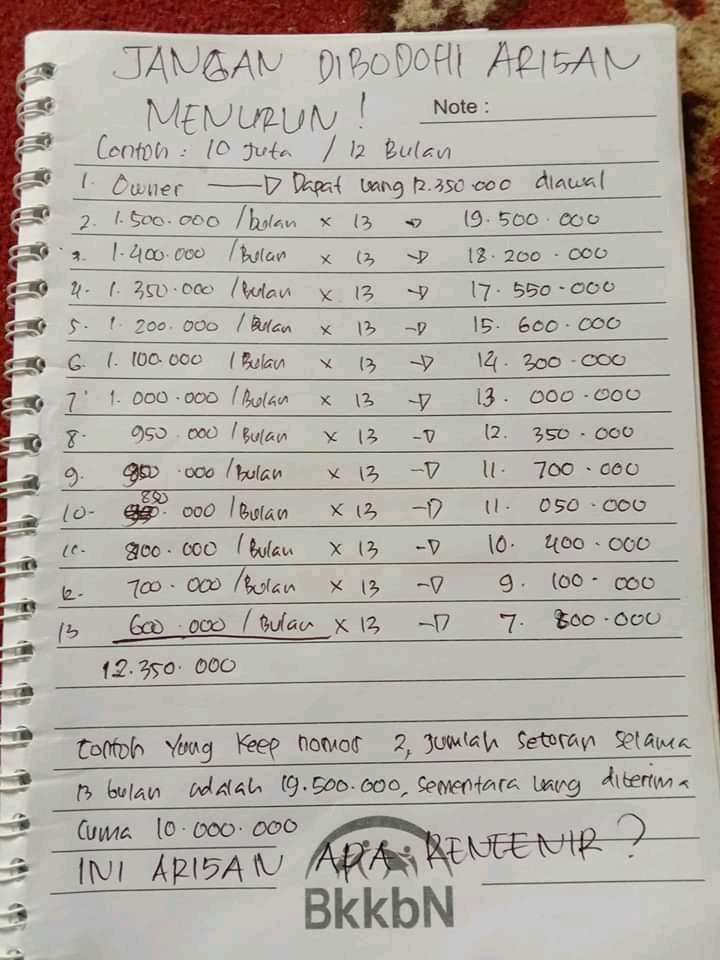 JANGAN DIBODOHI ARISAN
MENURUN !
Note :
Contoh : 10 Juta / 12 Bulan
1. Owner → Dapat uang 12.350.000 diawal
2. 1.500.000 / bulan × 13 → 19.500.000
3. 1.400.000 / Bulan × 13 → 18.200.000
4. 1.350.000 / Bulan × 13 → 17.550.000
5. 1.200.000 / Bulan × 13 → 15.600.000
6. 1.100.000 / Bulan × 13 → 14.300.000
7. 1.000.000 / Bulan × 13 → 13.000.000
8. 950.000 / Bulan × 13 → 12.350.000
9. 900.000 / Bulan × 13 → 11.700.000
10. 850.000 / Bulan × 13 → 11.050.000
11. 800.000 / Bulan × 13 → 10.400.000
12. 700.000 / Bulan × 13 → 9.100.000
13 600.000 / Bulan × 13 → 7.800.000
12.350.000
Contoh Yang Keep nomor 2, Jumlah setoran selama
13 bulan adalah 19.500.000, sementara uang diterima
Cuma 10.000.000
INI ARISAN APA RENTENIR ?
BkkbN